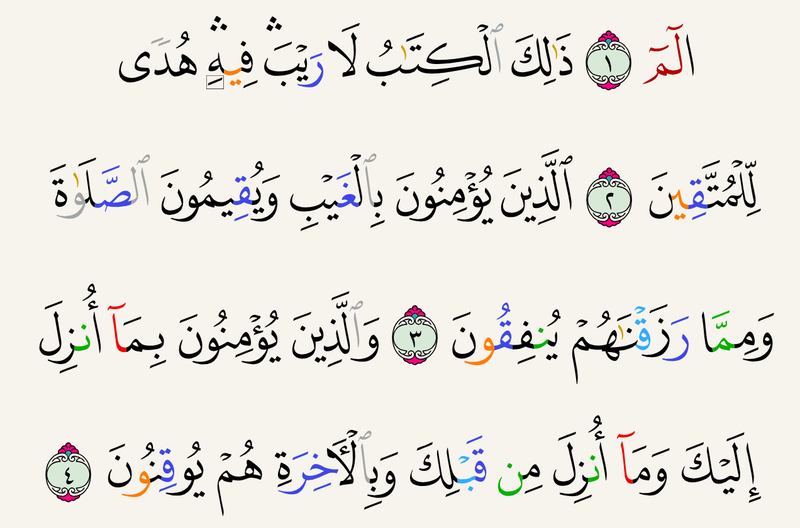 الٓمٓ ١ ذَٰلِكَ ٱلْكِتَٰبُ لَا رَيْبَ ۛ فِيهِ ۛ هُدًى
لِّلْمُتَّقِينَ ٢ ٱلَّذِينَ يُؤْمِنُونَ بِٱلْغَيْبِ وَيُقِيمُونَ ٱلصَّلَوٰةَ
وَمِمَّا رَزَقْنَٰهُمْ يُنفِقُونَ ٣ وَٱلَّذِينَ يُؤْمِنُونَ بِمَآ أُنزِلَ
إِلَيْكَ وَمَآ أُنزِلَ مِن قَبْلِكَ وَبِٱلْأَخِرَةِ هُمْ يُوقِنُونَ ٤